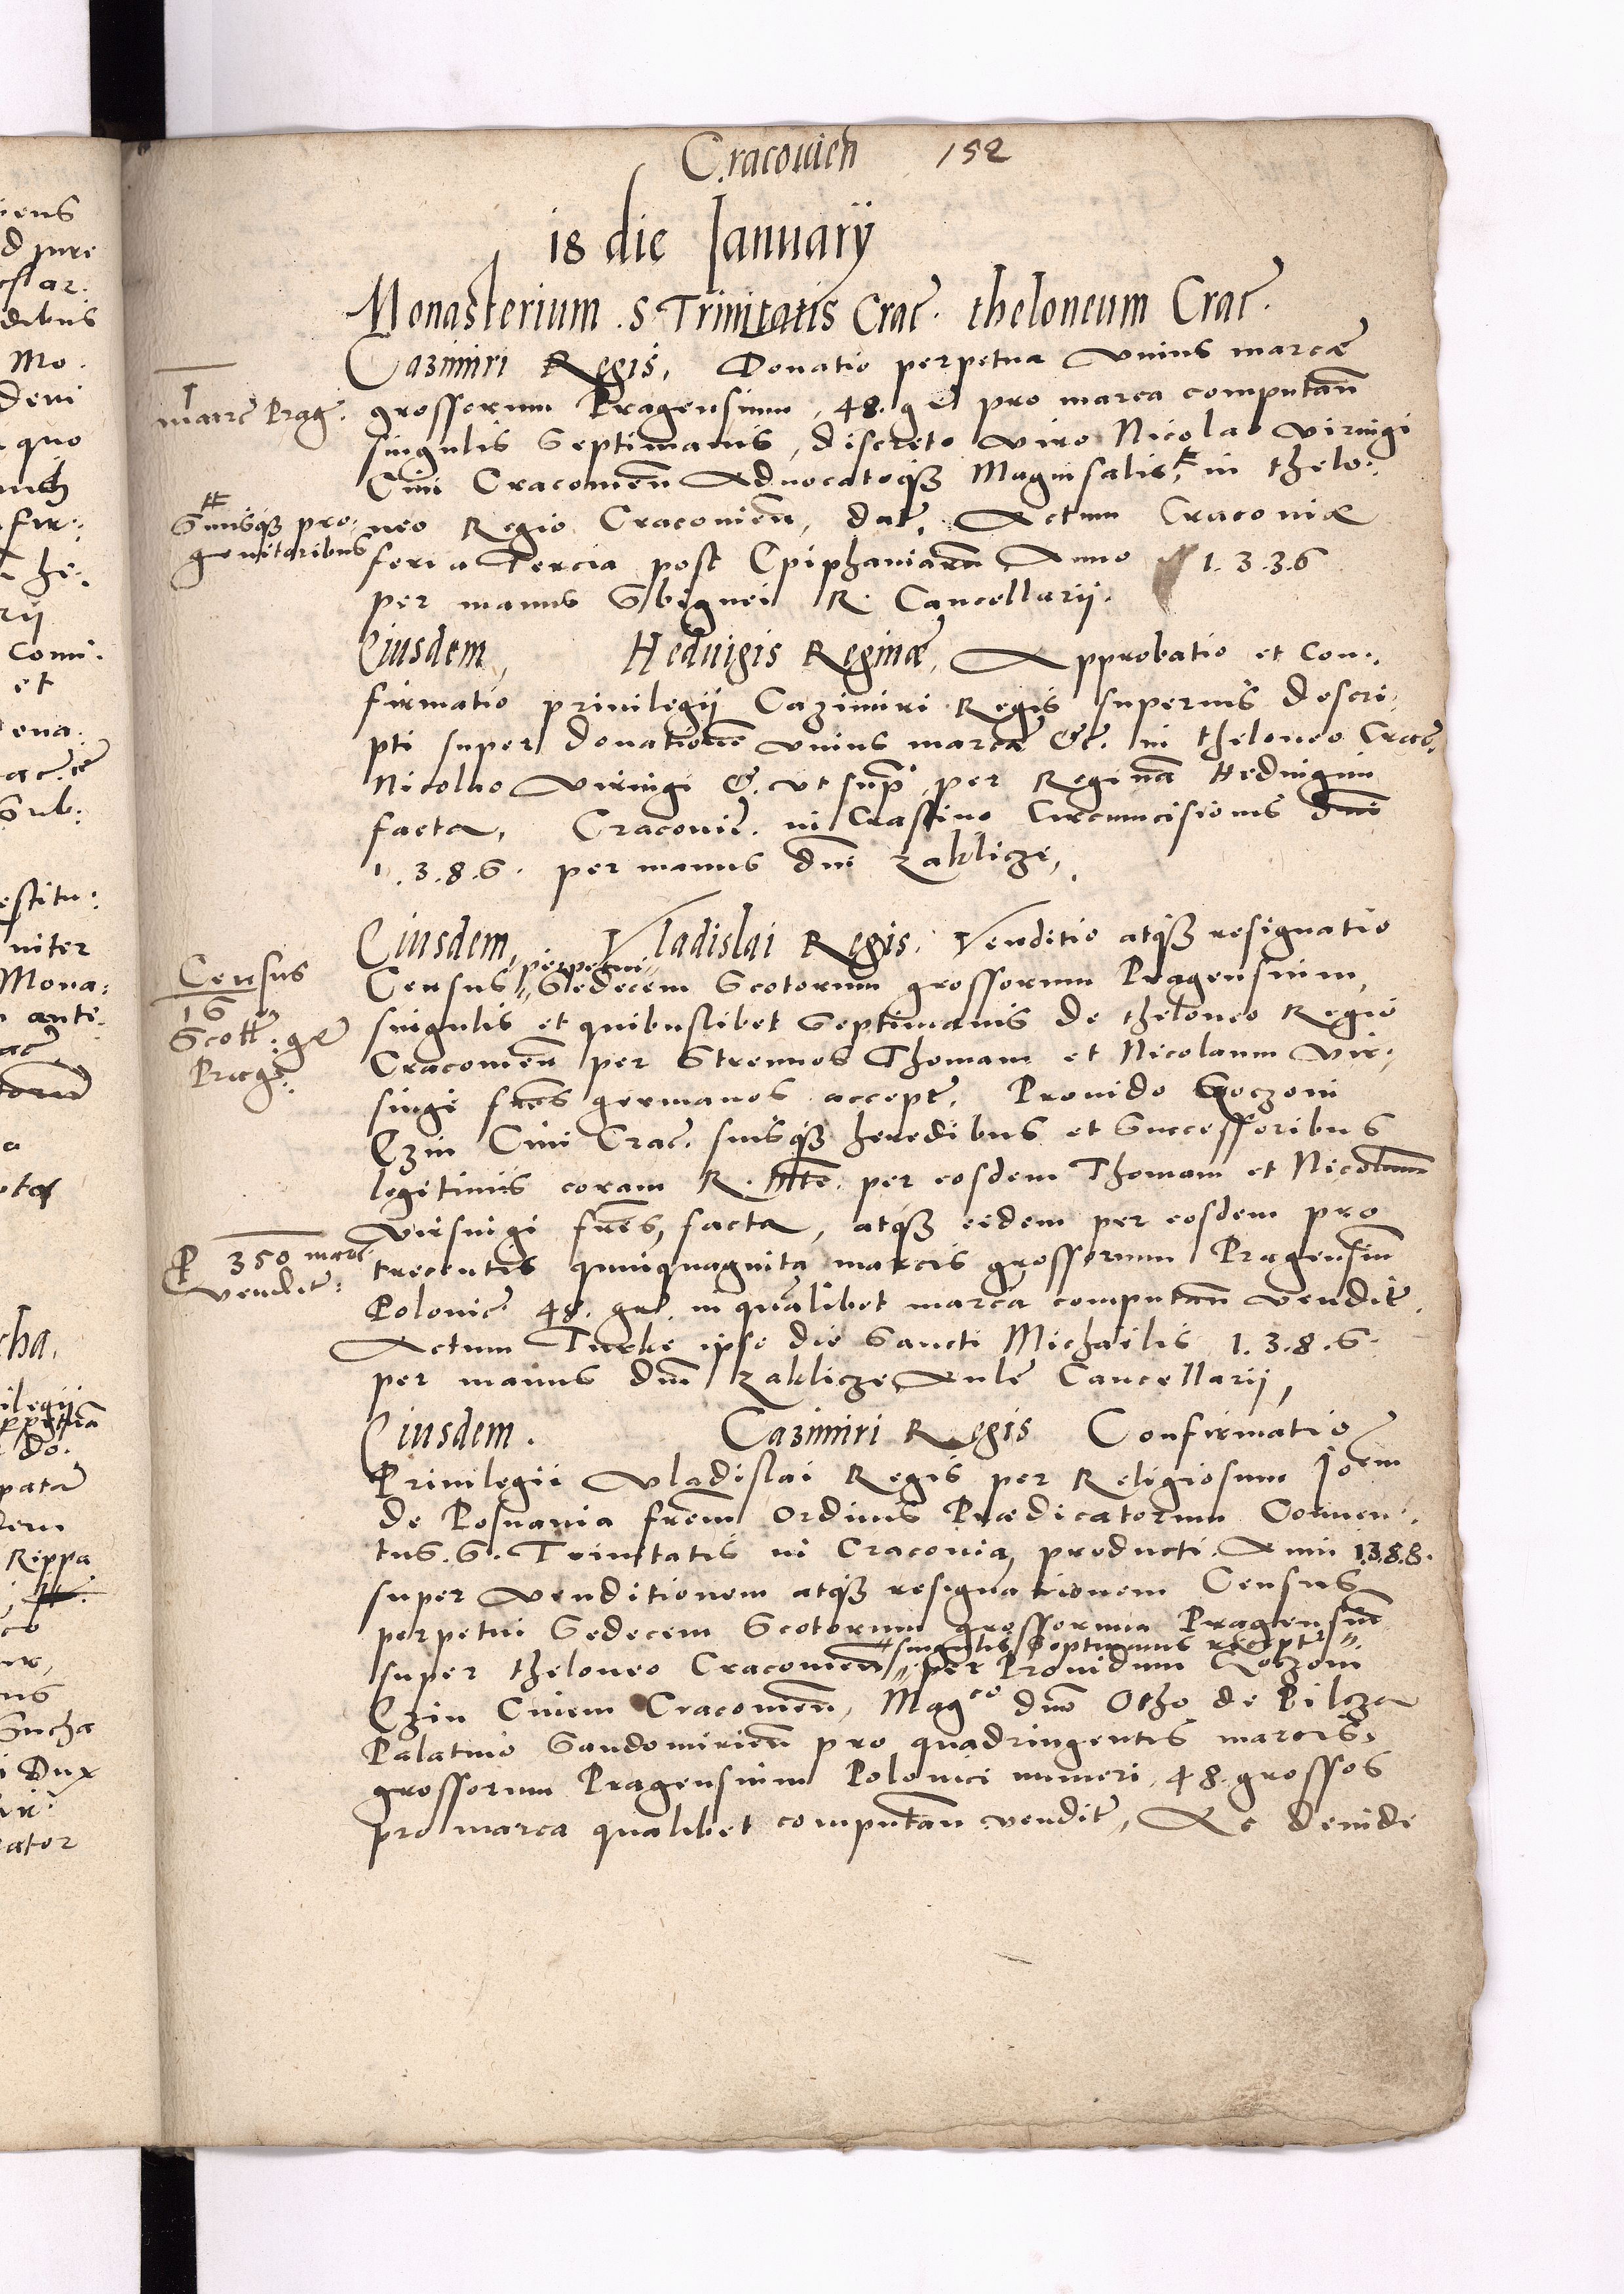 Cracouien 152
18 die Ianuarÿ
Monasterium S. Trinitatis Crac. theloneum Crac.
Cazimiri Regis. Donatio perpetua vnius marcæ
1
marce Prag.
grossorum Pragensium, 48. gr pro marca computan
singulis septimanis, discreto viro Nicolao virsingi
Ciui Cracouien Aduocatoqȝ Magnisalis, # in thelo:
# Suisqȝ pro:
genitoribus
neo Regio Cracouien, dat. Actum Cracouiæ
feria tercia post Epiphaniarum Anno 1.3.3.6
per manus Sbignei R. Cancellarii.
Eiusdem, Heduigis Reginæ, Approbatio et Con:
firmatio priuilegij Cazimiri Regis superius descri:
pti super donatione vnius marcæ &c. in theloneo Crac.
Nicolao virsingi &. vt supra per Reginam Heduigim
facta, Cracouie. in Crastino Circumcisionis dni
1.3.8.6. per manus dni Zaklicze,
Eiusdem, Vladislai Regis. Venditio atqȝ resignatio
Census
16
Scott: gr
Prage:
Census "perpetui" Sedecem Scotorum grossorum Pragensium,
singulis et quibuslibet septimanis de theloneo Regio
Cracouien per Strenuos Thomam et Nicolaum vir:
singi fres germanos accept. Prouido Goczoni
Czin Ciui Crac. suisqȝ heredibus et Successoribus
legitimis coram R. Mte. per eosdem Thomam et Nicolaum
virsingi fres, facta, atqȝ eidem per eosdem pro
P 350 marc.
vendit:
trecentis quinquaginta marcis grossorum Pragensium
Polonic. 48. gr. in qualibet marca computan vendit.
Actum Lucke ipso die Sancti Michaelis 1.3.8.6.
per manus dni Zaklicze Aule Cancellarij,
Eiusdem. Cazimiri Regis Confirmatio
Priuilegii Vladislai Regis per Religiosum Joem
de Posnania frem Ordinis Prædicatorum Conuen:
tus. S. Trinitatis in Cracouia producti. Anni 1388.
super venditionem atqȝ resignationem Census
perpetui Sedecem Scotorum grossorum Pragensium
super theloneo Cracouien "singulis septimanis recept" per Prouidum Goczoni
Czin Ciuem Cracouien, Magco dno Otho de Pilcza
Palatino Sandomirien pro quadringentis marcis,
grossorum Pragensium Polonici numeri, 48. grossos
pro marca qualibet computan vendit, Ac deinde